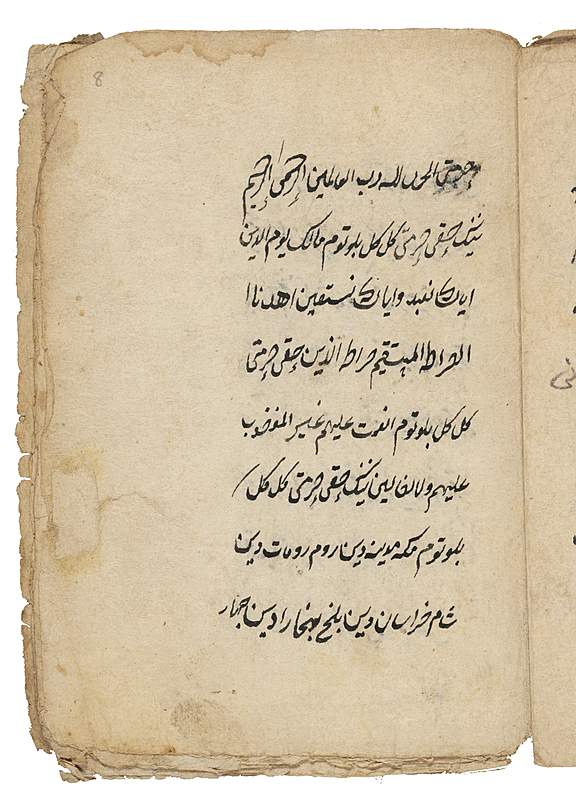 8
وحرمتی الحمد لله رب العالمین الرحمن الرحیم
نینک حقی حرمتی کل کل بلوتوم مالک یوم الدین
ایاک نعبد وایاک نستعین اهدنا ا
الصراط المستقیم صراط الذین حقی حرمتی
کل کل بلوتوم انعمت علیهم غیر المغضوب
علیهم ولا الضالین نینک حقی حرمتی کل کل
بلوتوم مکه مدینه دین روم دین
شام خراسان دین بلخ بخارا دین